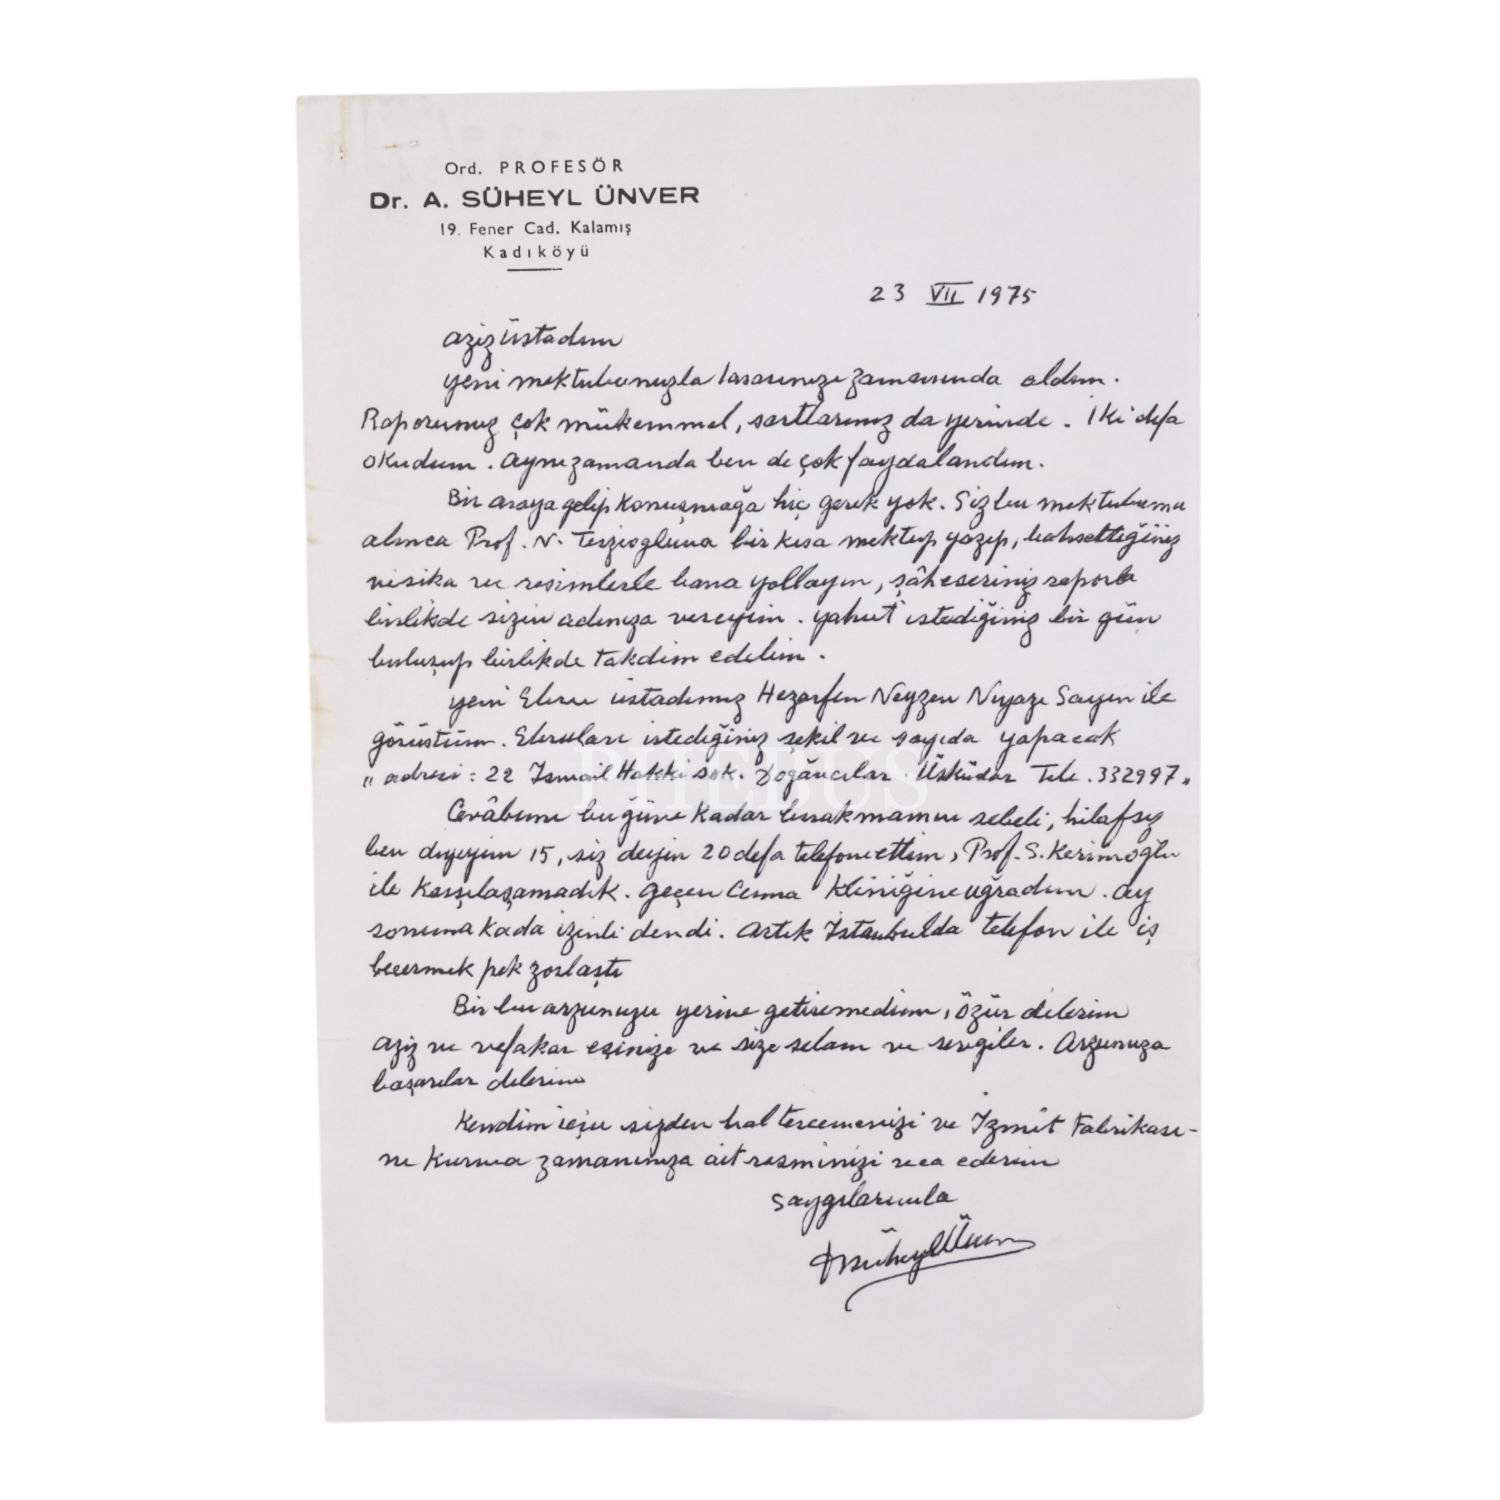 Ord. PROFESÖR
Dr. A. SÜHEYL ÜNVER
19. Fener Cad. Kalamış
Kadıköyü
23 VII 1975
aziz üstadım
yeni mektubunuzla zamanında aldım.
Raporunuz çok mükemmel, şartlarınız da yerinde. İki defa
okudum. Aynı zamanda ben de çok faydalandım.
Bir araya gelip konuşmağa hiç gerek yok. Siz bu mektubumu
alınca Prof. N. Terzioğluna bir kısa mektup yazıp, bahsettiğiniz
vesika ve resimlerle bana yollayın, şâheseriniz raporla
birlikde sizin adınıza vereyim. yahut istediğiniz bir gün
buluşup birlikde takdim edelim.
yeni Ebru üstadımız Hezarfen Neyzen Niyazi Sayın ile
görüştüm. Ebruları istediğiniz şekil ve sayıda yapacak
" adresi : 22 İsmail Hakkı sok. Doğancılar. Üsküdar Tele. 332997 "
PHEBUS
Cevâbımı bugüne kadar bırakmamın sebebi, hilafsız
ben diyeyim 15, siz deyin 20 defa telefon ettim, Prof. S. Kerimoğlu
ile karşılaşamadık. geçen Cuma kliniğine uğradım. ay
sonuna kada izinli dendi. artık İstanbulda telefon ile iş
becermek pek zorlaştı
Bir bu arzunuzu yerine getiremedim, özür dilerim
aziz ve vefakar eşinize ve size selam ve sevgiler. Arzunuza
başarılar dilerim
Kendim için sizden hal tercemenizi ve İzmit Fabrikası-
nı kurma zamanınıza ait resminizi rica ederim
Saygılarımla
A Süheyl Ünver